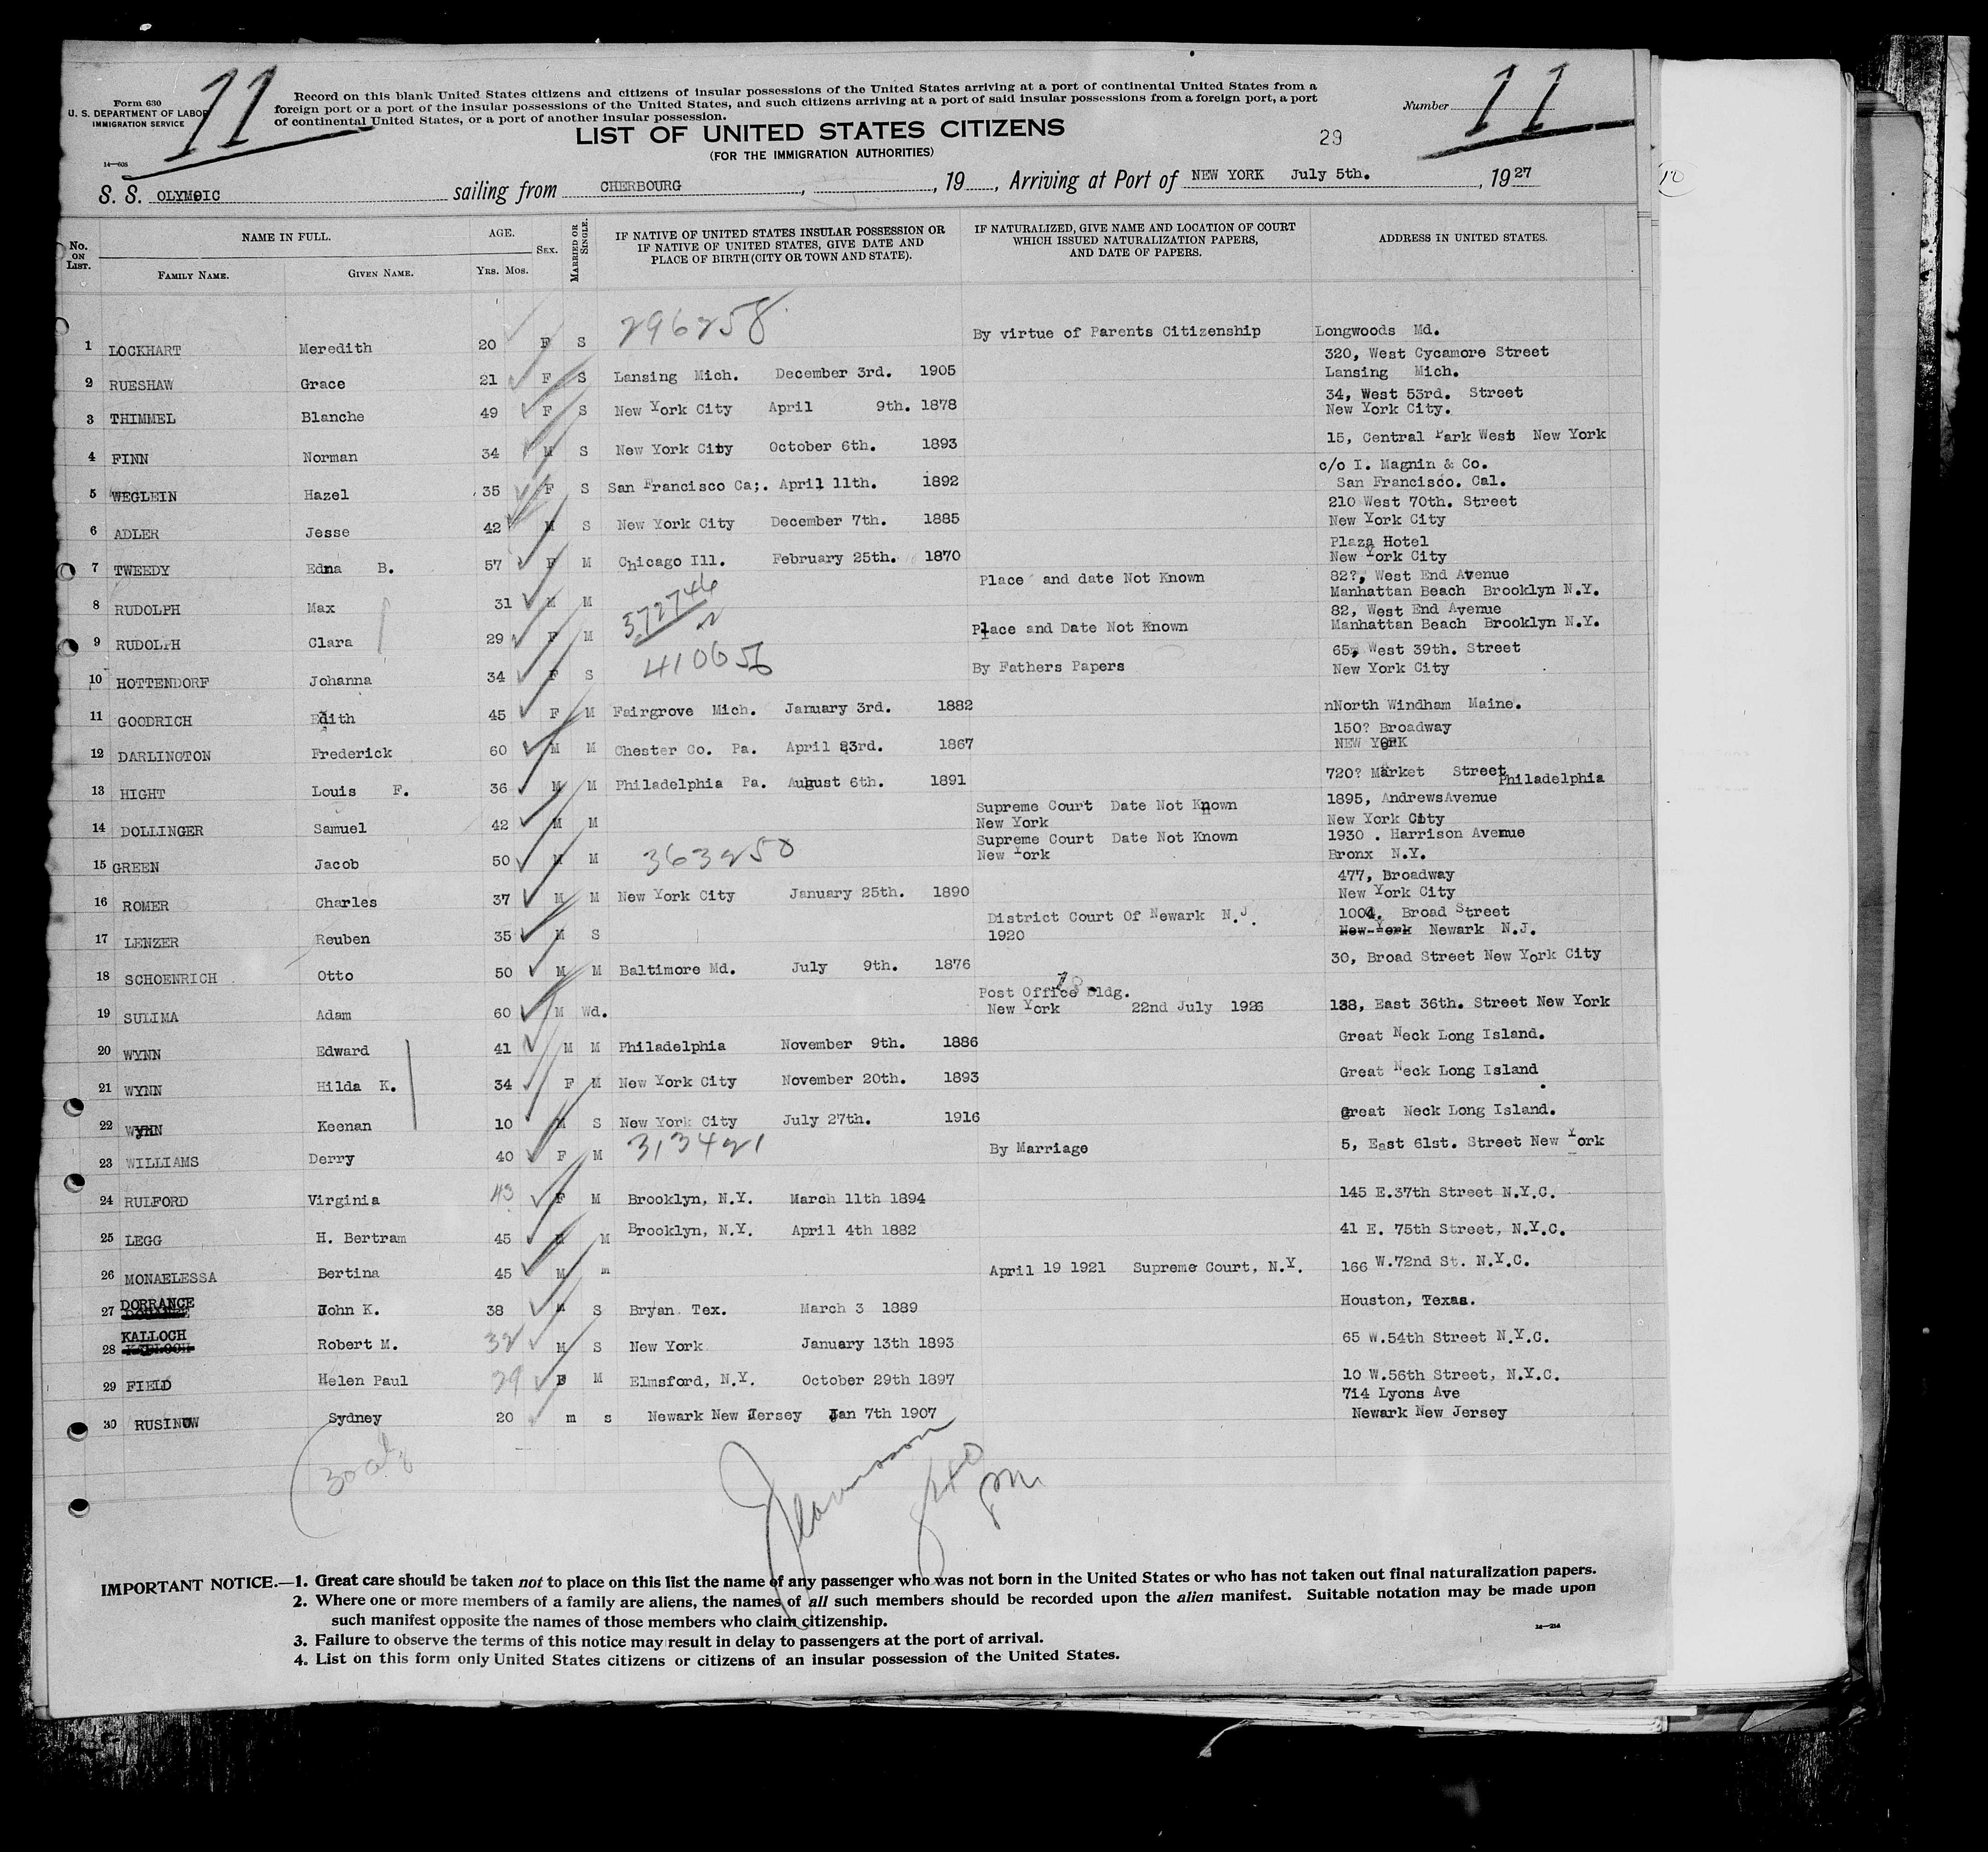 Form 630
U. S. DEPARTMENT OF LABOR
IMMIGRATION SERVICE
14—608
11
Record on this blank United States citizens and citizens of insular possessions of the United States arriving at a port of continental United States from a
foreign port or a port of the insular possessions of the United States, and such citizens arriving at a port of said insular possessions from a foreign port, a port
of continental United States, or a port of another insular possession.
Number 11
LIST OF UNITED STATES CITIZENS
29
(FOR THE IMMIGRATION AUTHORITIES)
S. S. OLYMPIC sailing from CHERBOURG , , 19 , Arriving at Port of NEW YORK July 5th. , 1927
10
No. ON LIST. NAME IN FULL. FAMILY NAME. GIVEN NAME. AGE. YRS. MOS. SEX. MARRIED OR SINGLE. IF NATIVE OF UNITED STATES INSULAR POSSESSION OR IF NATIVE OF UNITED STATES, GIVE DATE AND PLACE OF BIRTH (CITY OR TOWN AND STATE). IF NATURALIZED, GIVE NAME AND LOCATION OF COURT WHICH ISSUED NATURALIZATION PAPERS, AND DATE OF PAPERS. ADDRESS IN UNITED STATES.
1 LOCKHART Meredith 20 F S 296258 By virtue of Parents Citizenship Longwoods Md.
2 RUESHAW Grace 21 F S Lansing Mich. December 3rd. 1905 320, West Cycamore Street Lansing Mich.
3 THIMMEL Blanche 49 F S New York City April 9th. 1878 34, West 53rd. Street New York City.
4 FINN Norman 34 M S New York City October 6th. 1893 15, Central Park West New York
5 WEGLEIN Hazel 35 F S San Francisco Ca;. April 11th. 1892 c/o I. Magnin & Co. San Francisco. Cal.
6 ADLER Jesse 42 M S New York City December 7th. 1885 210 West 70th. Street New York City
7 TWEEDY Edna B. 57 F M Chicago Ill. February 25th. 1870 Plaza Hotel New York City
8 RUDOLPH Max 31 M M 572746 Place and date Not Known 82?, West End Avenue Manhattan Beach Brooklyn N.Y.
9 RUDOLPH Clara 29 F M Place and Date Not Known 82, West End Avenue Manhattan Beach Brooklyn N.Y.
10 HOTTENDORF Johanna 34 F S 410656 By Fathers Papers 65, West 39th. Street New York City
11 GOODRICH Edith 45 F M Fairgrove Mich. January 3rd. 1882 nNorth Windham Maine.
12 DARLINGTON Frederick 60 M M Chester Co. Pa. April 23rd. 1867 150? Broadway NEW YORK
13 HIGHT Louis F. 36 M M Philadelphia Pa. August 6th. 1891 720? Market Street Philadelphia
14 DOLLINGER Samuel 42 M M Supreme Court Date Not Known New York 1895, AndrewsAvenue New York City
15 GREEN Jacob 50 M M 363250 Supreme Court Date Not Known New York 1930 . Harrison Avenue Bronx N.Y.
16 ROMER Charles 37 M M New York City January 25th. 1890 477, Broadway New York City
17 LENZER Reuben 35 M S District Court Of Newark N.J. 1920 1004, Broad Street New York Newark N.J.
18 SCHOENRICH Otto 50 M M Baltimore Md. July 9th. 1876 30, Broad Street New York City
19 SULIMA Adam 60 M Wd. Post Office Bldg. New York 22nd July 1926 138, East 36th. Street New York
20 WYNN Edward 41 M M Philadelphia November 9th. 1886 Great Neck Long Island.
21 WYNN Hilda K. 34 F M New York City November 20th. 1893 Great Neck Long Island
22 WYNN Keenan 10 M S New York City July 27th. 1916 Great Neck Long Island.
23 WILLIAMS Derry 40 F M 313421 By Marriage 5, East 61st. Street New York
24 RULFORD Virginia 43 F M Brooklyn, N.Y. March 11th 1894 145 E.37th Street N.Y.C.
25 LEGG H. Bertram 45 M M Brooklyn, N.Y. April 4th 1882 41 E. 75th Street, N.Y.C.
26 MONAELESSA Bertina 45 M m April 19 1921 Supreme Court, N.Y. 166 W.72nd St. N.Y.C.
27 DORRANCE John K. 38 m S Bryan Tex. March 3 1889 Houston, Texas.
28 KALLOCH Robert M. 32 M S New York January 13th 1893 65 W.54th Street N.Y.C.
29 FIELD Helen Paul 29 F M Elmsford, N.Y. October 29th 1897 10 W.56th Street, N.Y.C.
30 RUSINOW Sydney 20 m s Newark New Jersey Jan 7th 1907 714 Lyons Ave Newark New Jersey
IMPORTANT NOTICE.—1. Great care should be taken not to place on this list the name of any passenger who was not born in the United States or who has not taken out final naturalization papers.
2. Where one or more members of a family are aliens, the names of all such members should be recorded upon the alien manifest. Suitable notation may be made upon
such manifest opposite the names of those members who claim citizenship.
3. Failure to observe the terms of this notice may result in delay to passengers at the port of arrival.
4. List on this form only United States citizens or citizens of an insular possession of the United States.
14—214